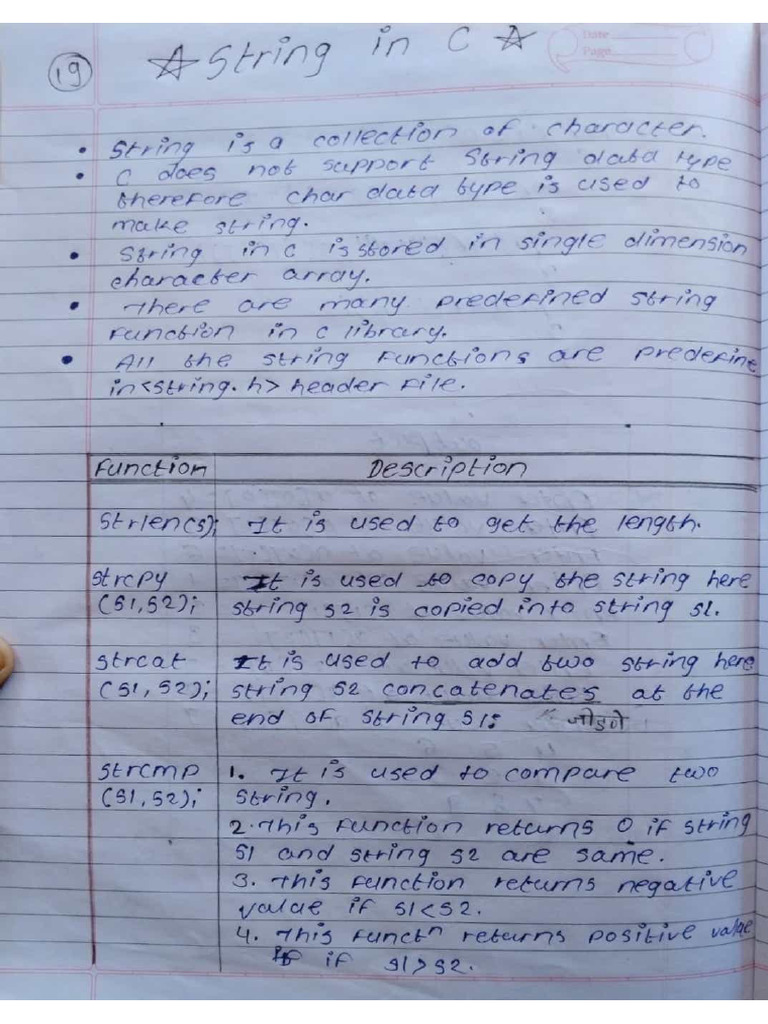 19
☆ String in C ☆
Date
Page
• String is a collection of character.
• C does not support String data type
therefore char data type is used to
make string.
• String in C is stored in single dimension
character array.
• There are many predefined string
function in C library.
• All the string functions are predefine
in <string.h> header file.
Function Description
Strlen(s); It is used to get the length.
strcpy It is used to copy the string here
(S1,S2); string S2 is copied into string S1.
strcat It is used to add two string here
(S1,S2); string S2 concatenates at the
end of string S1. जोडने
strcmp 1. It is used to compare two
(S1,S2); string.
2. This function returns 0 if string
S1 and string S2 are same.
3. This function returns negative
value if S1<S2.
4. This functn returns positive value
if S1>S2.